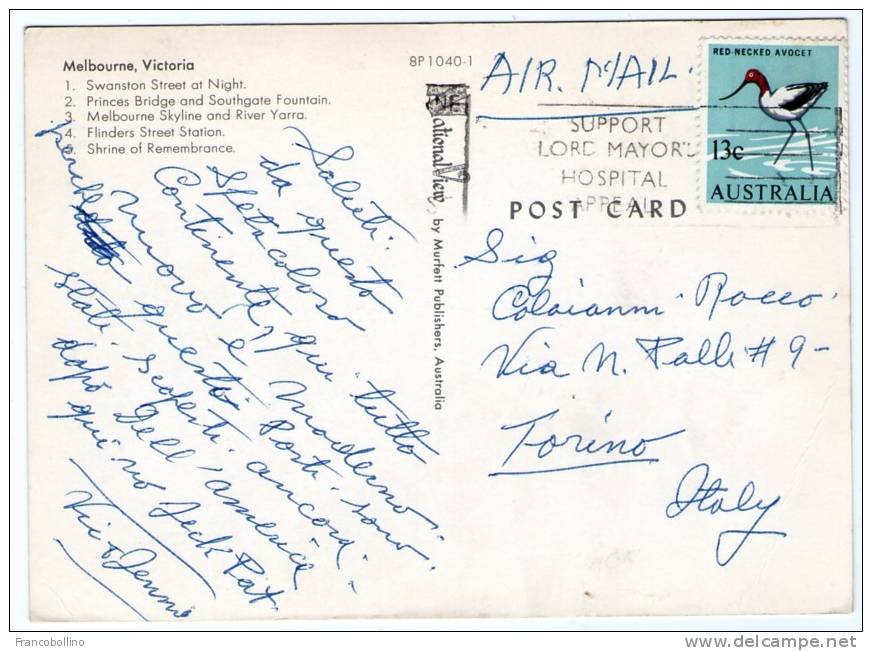 Melbourne, Victoria
1. Swanston Street at Night.
2. Princes Bridge and Southgate Fountain.
3. Melbourne Skyline and River Yarra.
4. Flinders Street Station.
5. Shrine of Remembrance.
8P1040-1
AIR. MAIL.
RED-NECKED AVOCET
13c
AUSTRALIA
SUPPORT
LORD MAYOR'S
HOSPITAL
APPEAL
POST CARD
National View
by Murfett Publishers, Australia
Saluti:
da questo
Spettacoloso
Continente, qui tutto
nuovo e Moderno:
perche questi Posti sono
stati scoperti ancora
dopo Dell'america
qui no Jeck Pat.
Sig
Colaianni Rocco.
Via N. Palli # 9-
Torino
Italy
Francobollino
www.delcampe.net